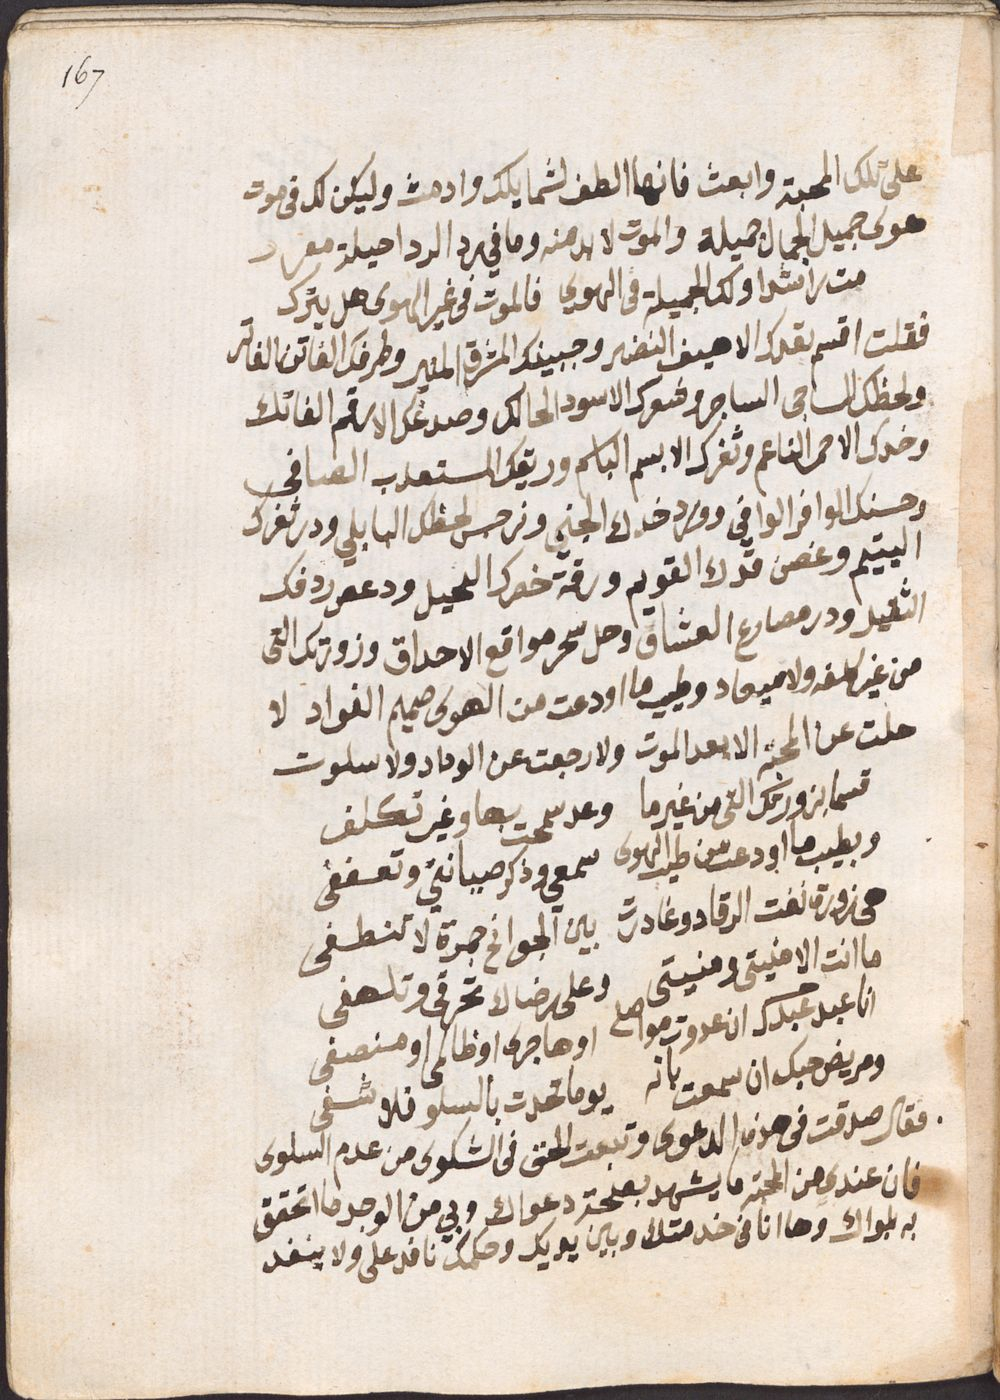 167
على تلك المحبة وابعث فانها الطف لشمايلك وادمث وليكن لك في موت
هوى جميل الجمال جميلة والموت لابد منه وما في برد الردا حيلة
مت راشدا ولك الجميلة في الهوي فالموت في غير الهوى هل يترك
فقلت اقسم بقدك الاهيف النضير وجبينك المشرق المنير وطرفك الفاتن الفاتر
ولحظك الساجى الساحر وشعرك الاسود الحالك وصدغك الارقم الفاتك
وخدك الاحمر الناعم وثغرك الابسم الباسم وريقك المستعدب الصافي
وحسنك الوافر الوافي وورد خدك الجني ونرجس لحظك البابلي ودر ثغرك
اليتيم وغصن قدك القويم ورقة خصرك النحيل ودعص ردفك
الثقيل ودر مصارع العشاق وحل سحر مواقع الاحداق وزورتك التى
من غير كلفه ولا ميعاد وطيب ما اودعت من الهوى صميم الفواد لا
حلت عن المحبه الا بعد الموت ولا رجعت عن الوداد ولا سلوت
قسما بزورتك التى من غير ما وعد سمحت بها وغير تكلف
وبطيب ما اودعت من طيب الهوى سمعي وذكر صبابتي وتعففى
هى زورة نفت الرقاد وغادرت بين الجوانح جمرة لا تنطفى
ما انت الا منيتى ومنيتى وعلى رضاك تحرقى وتلهفى
انا عبد عبدك ان عدوت مواصلى او هاجرى او ظالمى او منصفى
ومريض حبك ان سمعت بانه يوما تحدث بالسلو فلا شفى
فقال صدقت فى هذه الدعوى وتبعت الحق فى الشكوى من عدم السلوى
فان عندي من المحبه ما يشهد بصحة دعواك وبي من الوجد ما اتحقق
به بلواك وها انا في خدمتك وبين يديك وحكمك نافد على ولا ينفد